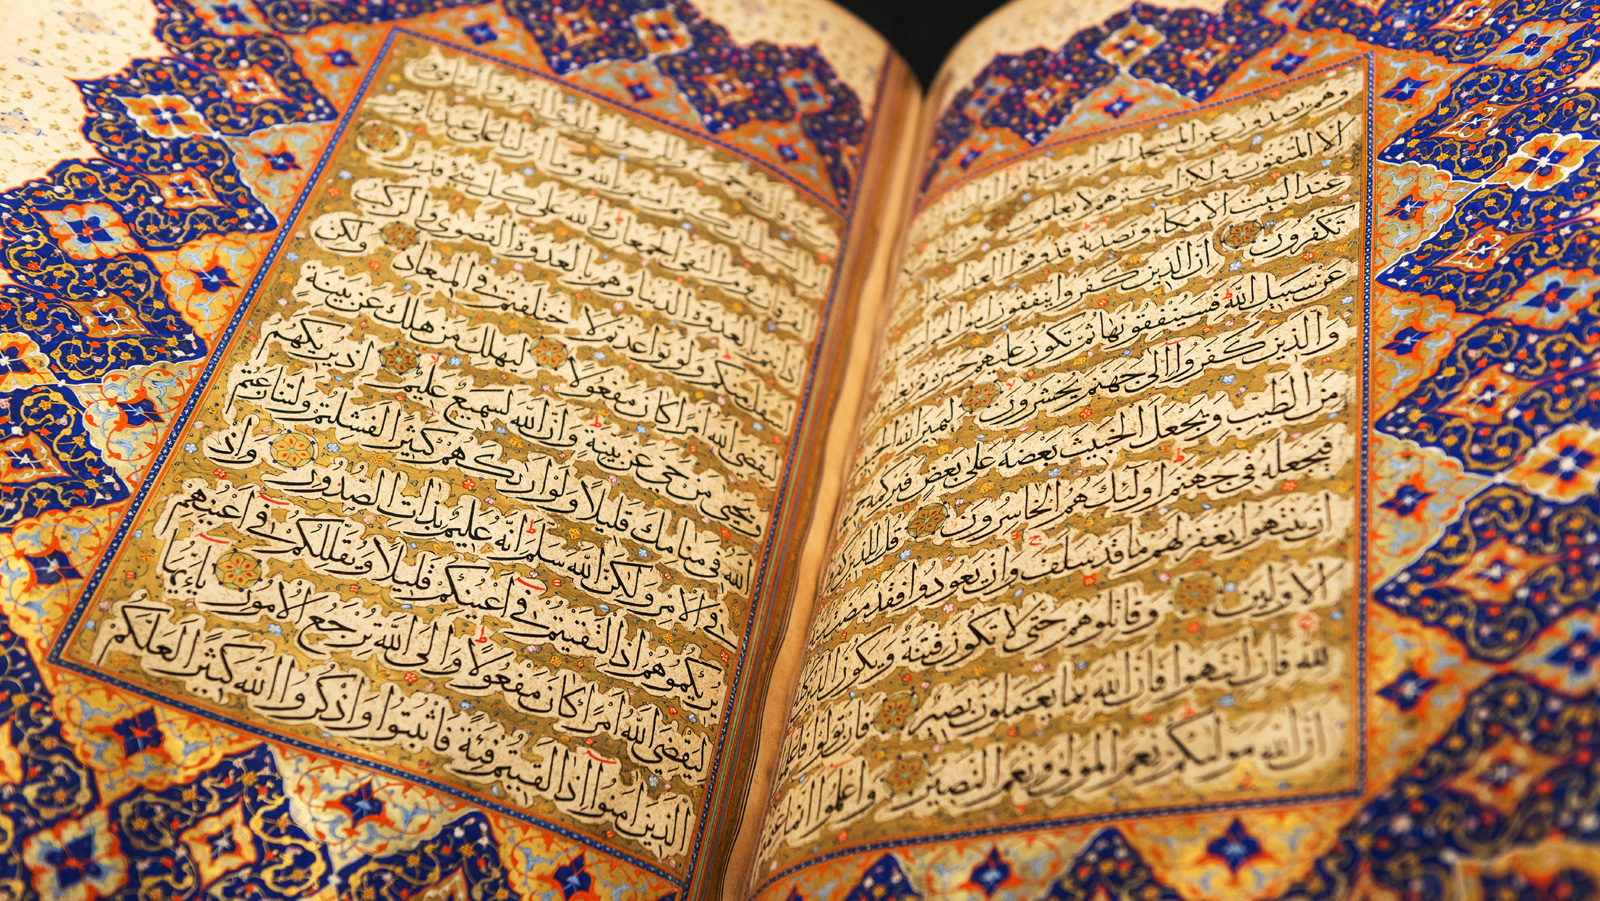 وهم يصدون عن المسجد الحرام وما كانوا
الا المتقون ولكن اكثرهم لا يعلمون
عند البيت الا مكاء وتصدية فذوقوا العذاب
تكفرون ان الذين كفروا ينفقون اموالهم
عن سبيل الله فسينفقونها ثم تكون عليهم حسرة ثم
والذين كفروا الى جهنم يحشرون ليميز الله
من الطيب ويجعل الخبيث بعضه على بعض فيركمه
فيجعله في جهنم اولئك هم الخاسرون قل للذين
ان ينتهوا يغفر لهم ما قد سلف وان يعودوا فقد مضت
الاولين وقاتلوهم حتى لا تكون فتنة ويكون الدين
لله فان انتهوا فان الله بما يعملون بصير وان تولوا فاعلموا
ان الله موليكم نعم المولى ونعم النصير واعلموا انما غنمتم
وللرسول ولذي القربى واليتامى
الفرقان يوم التقى الجمعان والله على كل شيء قدير
اذ انتم بالعدوة الدنيا وهم بالعدوة القصوى والركب
اسفل منكم ولو تواعدتم لاختلفتم في الميعاد ولكن
ليقضي الله امرا كان مفعولا ليهلك من هلك عن بينة
ويحيى من حي عن بينة وان الله لسميع عليم اذ يريكهم
الله في منامك قليلا ولو اراكهم كثيرا لفشلتم ولتنازعتم
في الامر ولكن الله سلم انه عليم بذات الصدور واذ
يريكموهم اذ التقيتم في اعينكم قليلا ويقللكم في اعينهم
ليقضي الله امرا كان مفعولا والى الله ترجع الامور ياءيها
الذين امنوا اذا لقيتم فئة فاثبتوا واذكروا الله كثيرا لعلكم